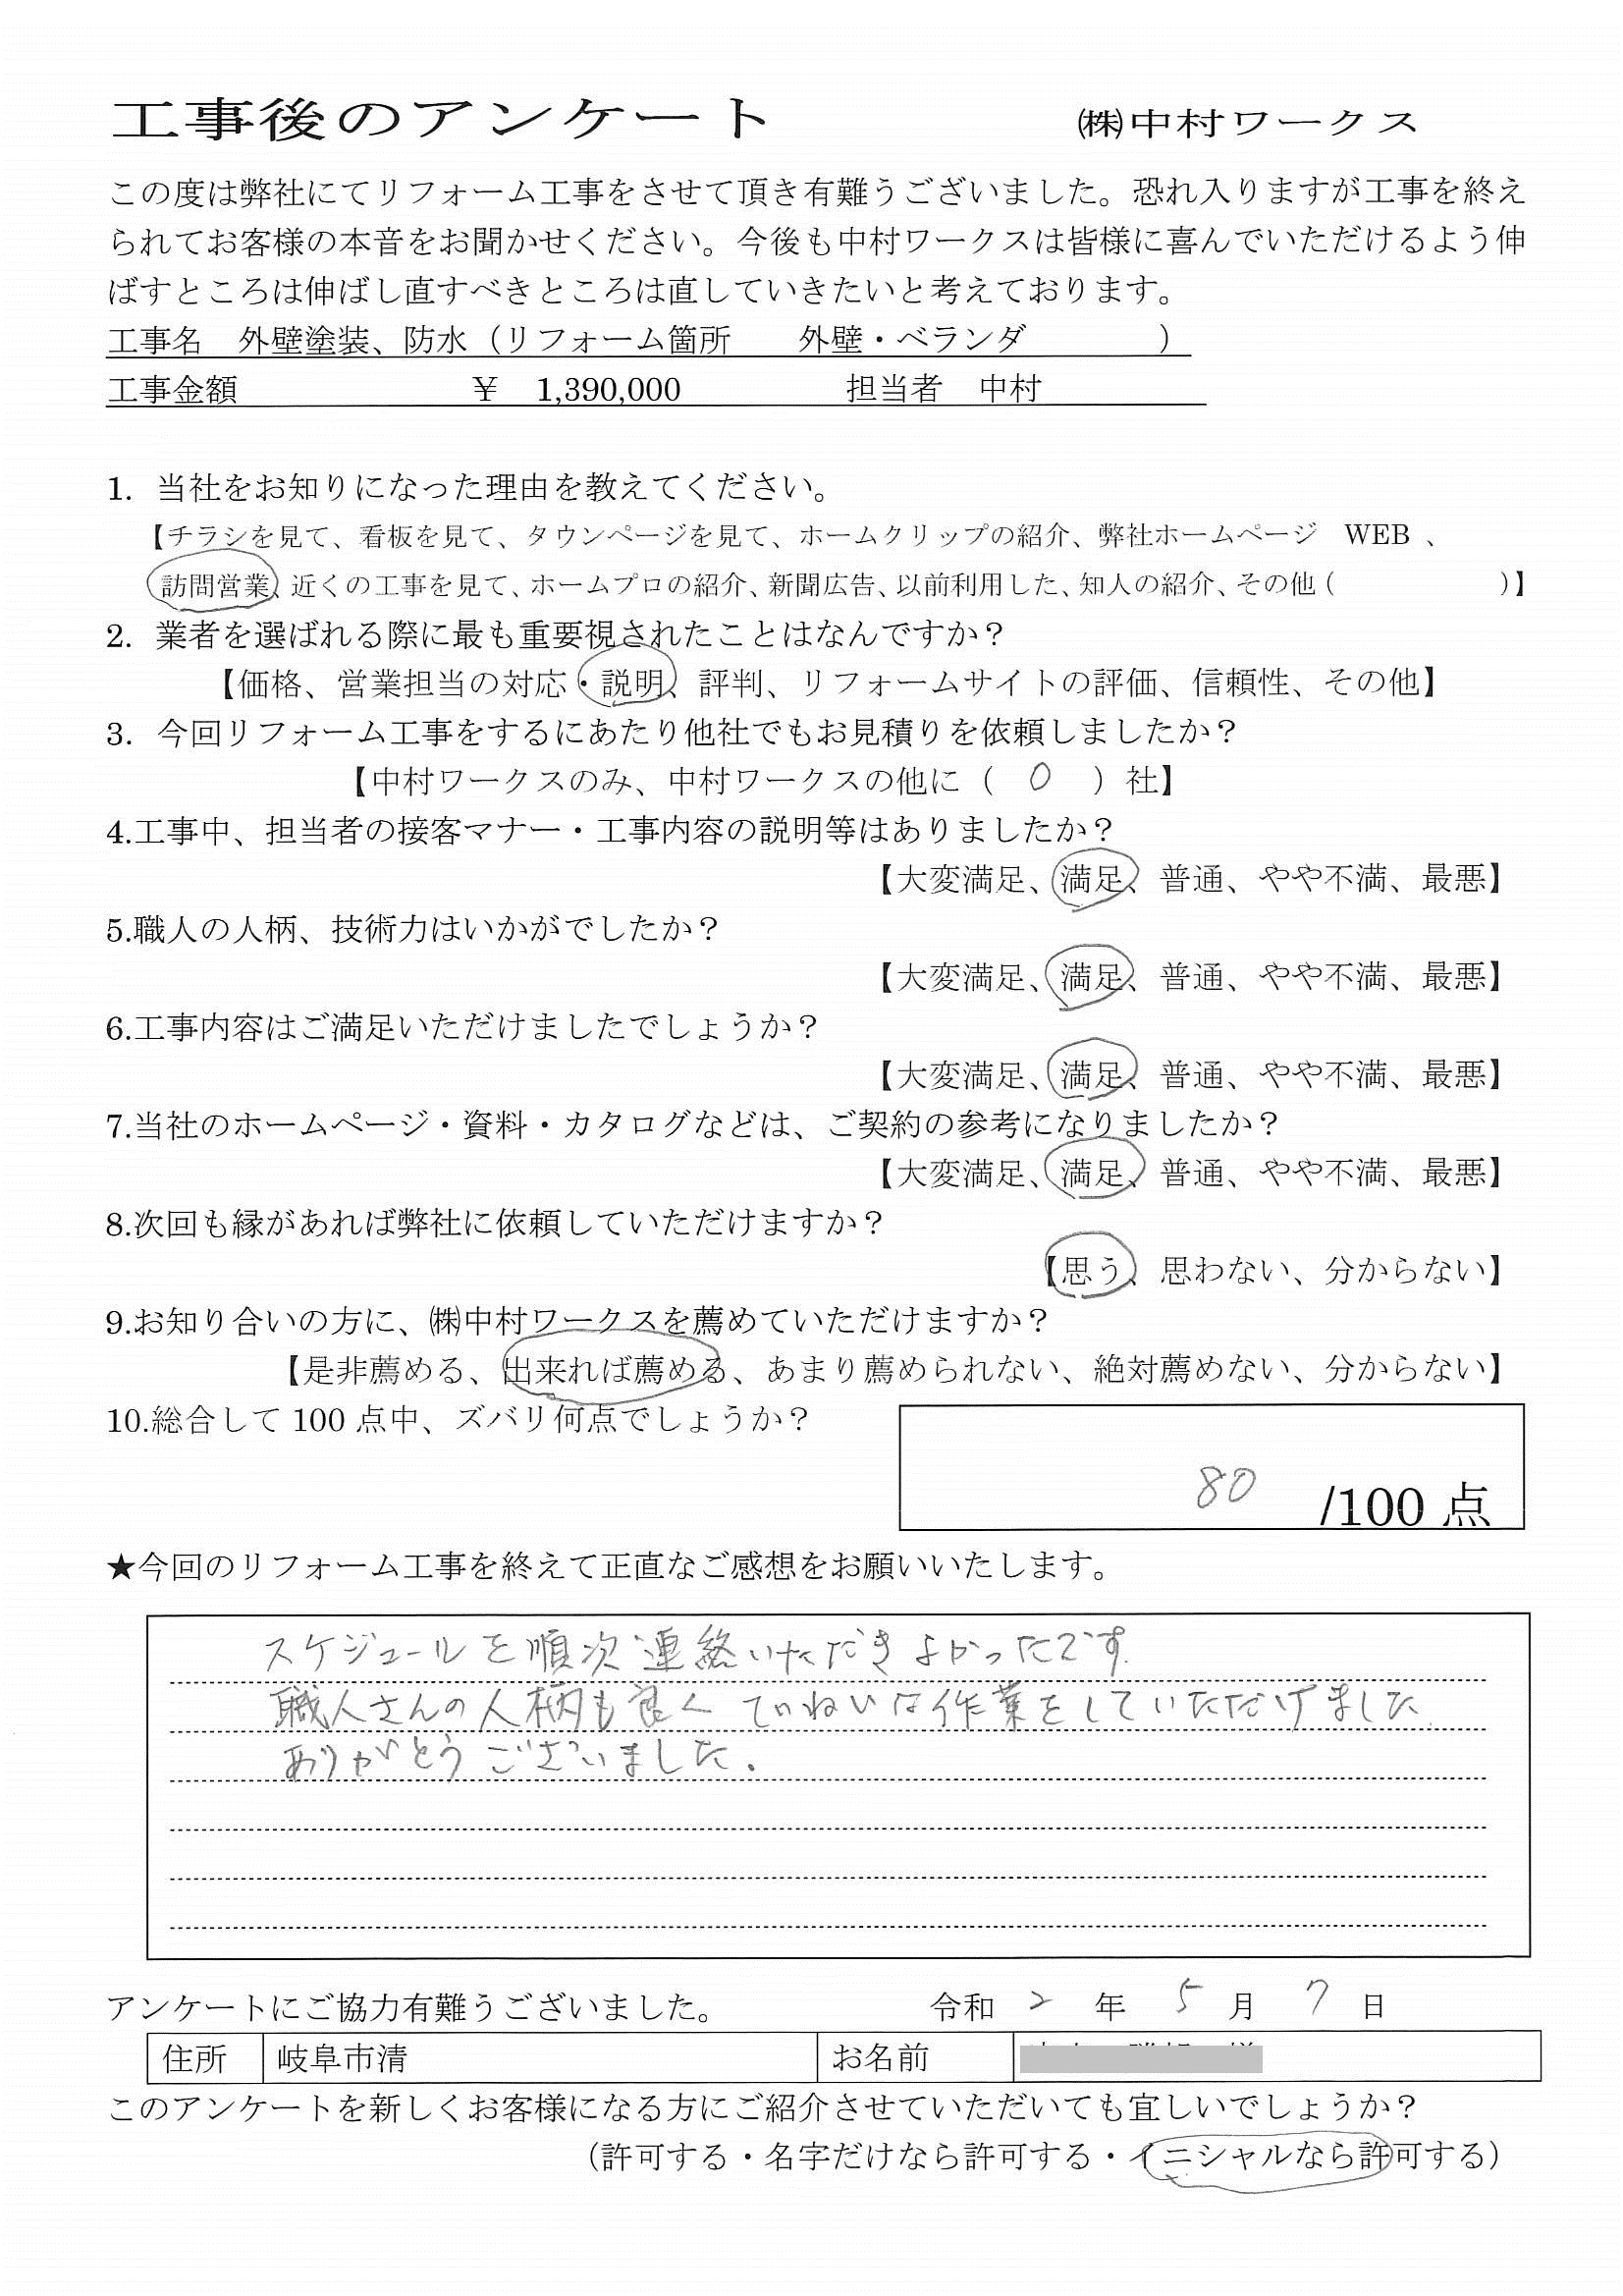 工事後のアンケート ㈱中村ワークス
この度は弊社にてリフォーム工事をさせて頂き有難うございました。恐れ入りますが工事を終え
られてお客様の本音をお聞かせください。今後も中村ワークスは皆様に喜んでいただけるよう伸
ばすところは伸ばし直すべきところは直していきたいと考えております。
工事名 外壁塗装、防水（リフォーム箇所 外壁・ベランダ ）
工事金額 ￥ 1,390,000 担当者 中村
1. 当社をお知りになった理由を教えてください。
【チラシを見て、看板を見て、タウンページを見て、ホームクリップの紹介、弊社ホームページ WEB 、
訪問営業、近くの工事を見て、ホームプロの紹介、新聞広告、以前利用した、知人の紹介、その他（ ）】
2. 業者を選ばれる際に最も重要視されたことはなんですか？
【価格、営業担当の対応・説明、評判、リフォームサイトの評価、信頼性、その他】
3. 今回リフォーム工事をするにあたり他社でもお見積りを依頼しましたか？
【中村ワークスのみ、中村ワークスの他に（ 0 ）社】
4.工事中、担当者の接客マナー・工事内容の説明等はありましたか？
【大変満足、満足、普通、やや不満、最悪】
5.職人の人柄、技術力はいかがでしたか？
【大変満足、満足、普通、やや不満、最悪】
6.工事内容はご満足いただけましたでしょうか？
【大変満足、満足、普通、やや不満、最悪】
7.当社のホームページ・資料・カタログなどは、ご契約の参考になりましたか？
【大変満足、満足、普通、やや不満、最悪】
8.次回も縁があれば弊社に依頼していただけますか？
【思う、思わない、分からない】
9.お知り合いの方に、㈱中村ワークスを薦めていただけますか？
【是非薦める、出来れば薦める、あまり薦められない、絶対薦めない、分からない】
10.総合して 100 点中、ズバリ何点でしょうか？
80 /100 点
★今回のリフォーム工事を終えて正直なご感想をお願いいたします。
スケジュールを順次連絡いただきよかったです.
職人さんの人柄も良く ていねいな作業をしていただけました.
ありがとうございました.
アンケートにご協力有難うございました。 令和 2 年 5 月 7 日
住所 岐阜市清 お名前
このアンケートを新しくお客様になる方にご紹介させていただいても宜しいでしょうか？
（許可する・名字だけなら許可する・イニシャルなら許可する）